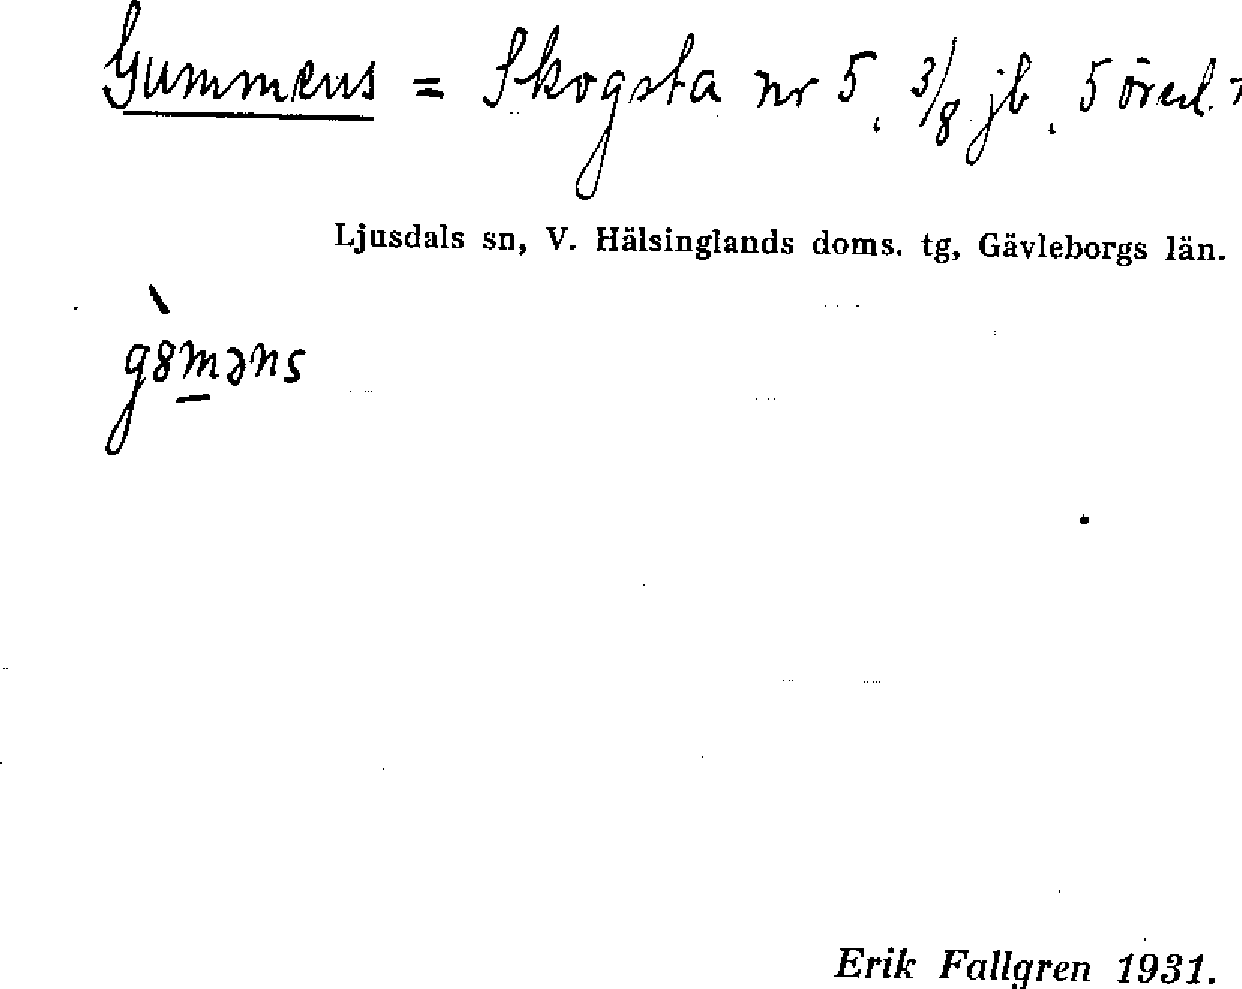 Gummens = Skogsta nr 5, 3/8 jb, 5 öresl.
Ljusdals sn, V. Hälsinglands doms. tg, Gävleborgs län.
g8̀m̱əns
Erik Fallgren 1931.